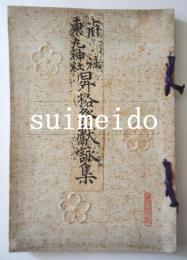 府社
東丸神社
昇格奉献詠集
suimeido